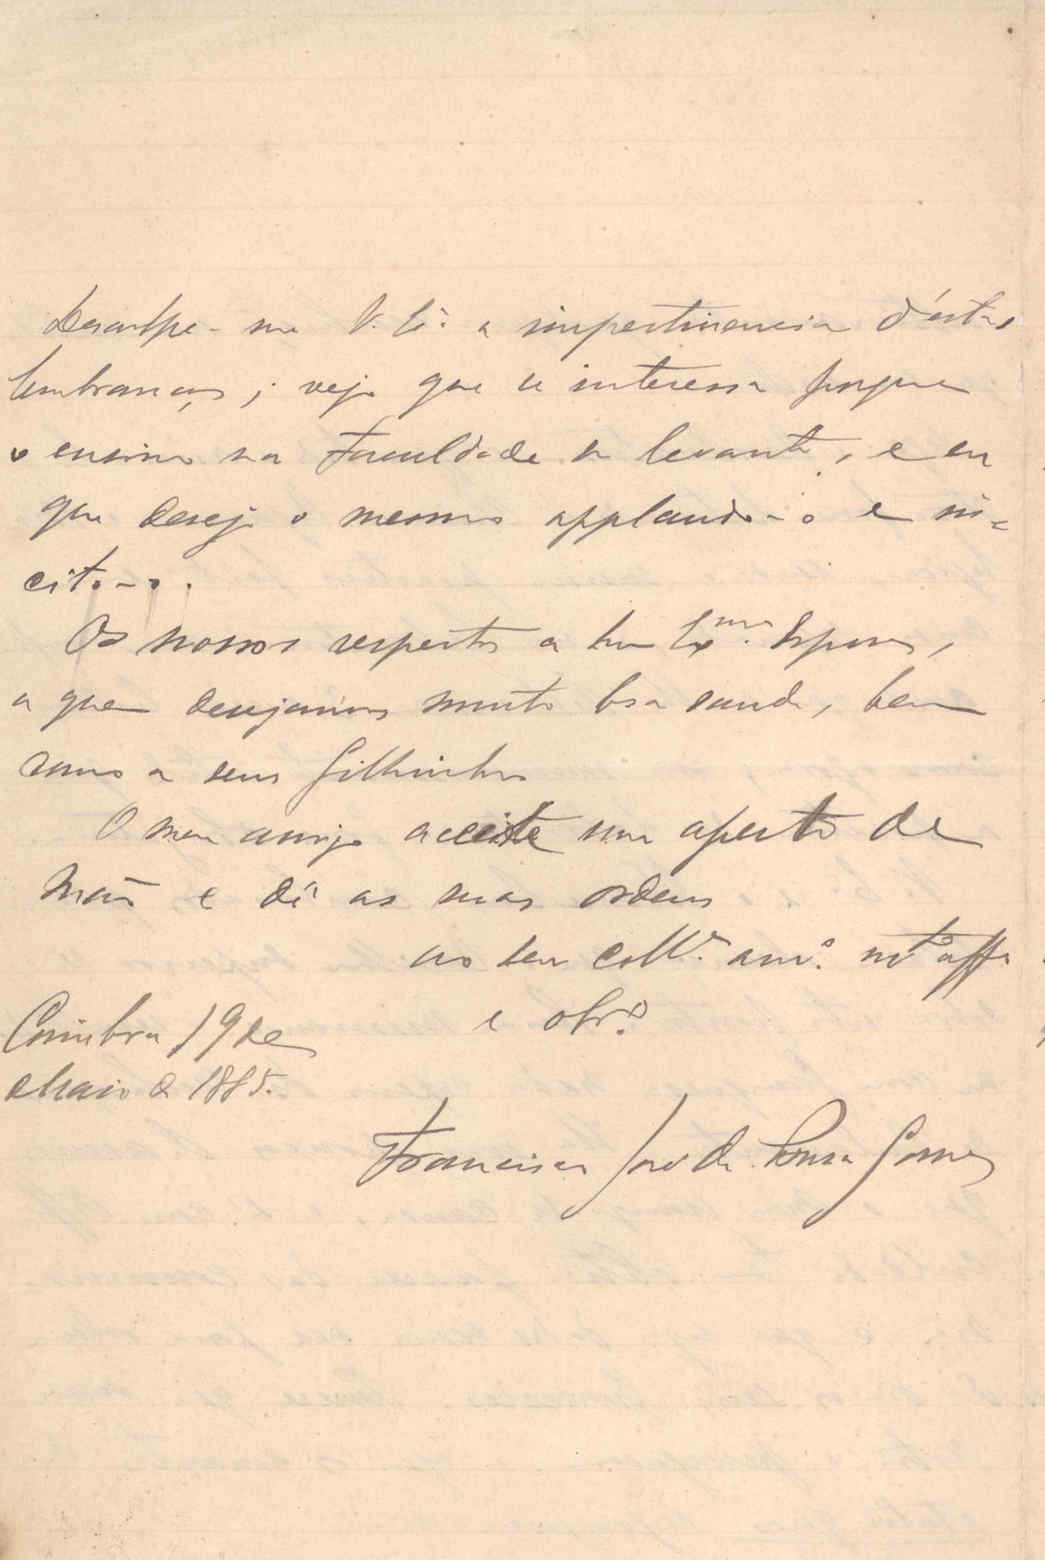 Desculpe-me V. Ex.ª a impertinencia d'estas
lembranças; vejo que se interessa porque
o ensino na Faculdade se levante, e eu
que desejo o mesmo applaudo-o e in-
cito-o.
Os nossos respeitos a sua Ex.ma Esposa,
a quem desejamos muito boa saude, bem
como a seus filhinhos
O meu amigo acceite um aperto de
mão e dê as suas ordens
ao seu coll.ª am.º m.to aff.
e obr.º
Coimbra 19 de
Maio de 1885.
Francisco José de Sousa Gomes